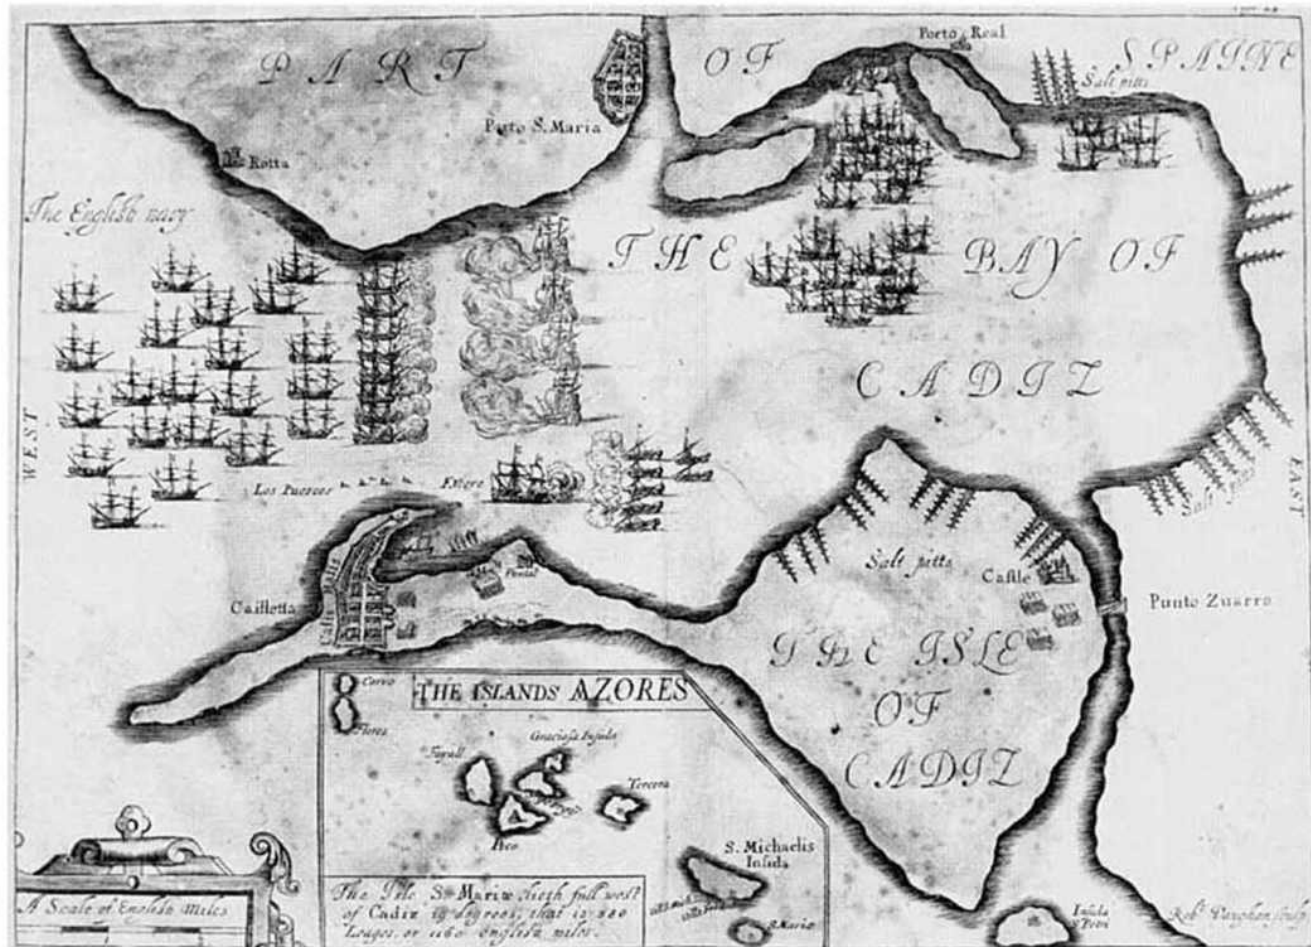 PART OF SPAINE
Porto Real
Salt pitts
Porto S. Maria
Rotta
The English navy
THE BAY OF
CADIZ
WEST
EAST
Los Puercos
Salt pitts
Salt pitts
Castle
Punto Zuarro
Cailletta
Puntal
THE ISLE
OF
CADIZ
THE ISLANDS AZORES
Corvo
Flores
Fayall
Graciosa Insula
Tercera
Pico
S. Michaelis
Insula
S. Maria
The Isle S. Mariæ lieth full west
of Cadiz 19 degrees, that is 380
Leages, or 1160 english miles.
A Scale of English Miles
Insula
Petri
Robt. Vaughan sculp